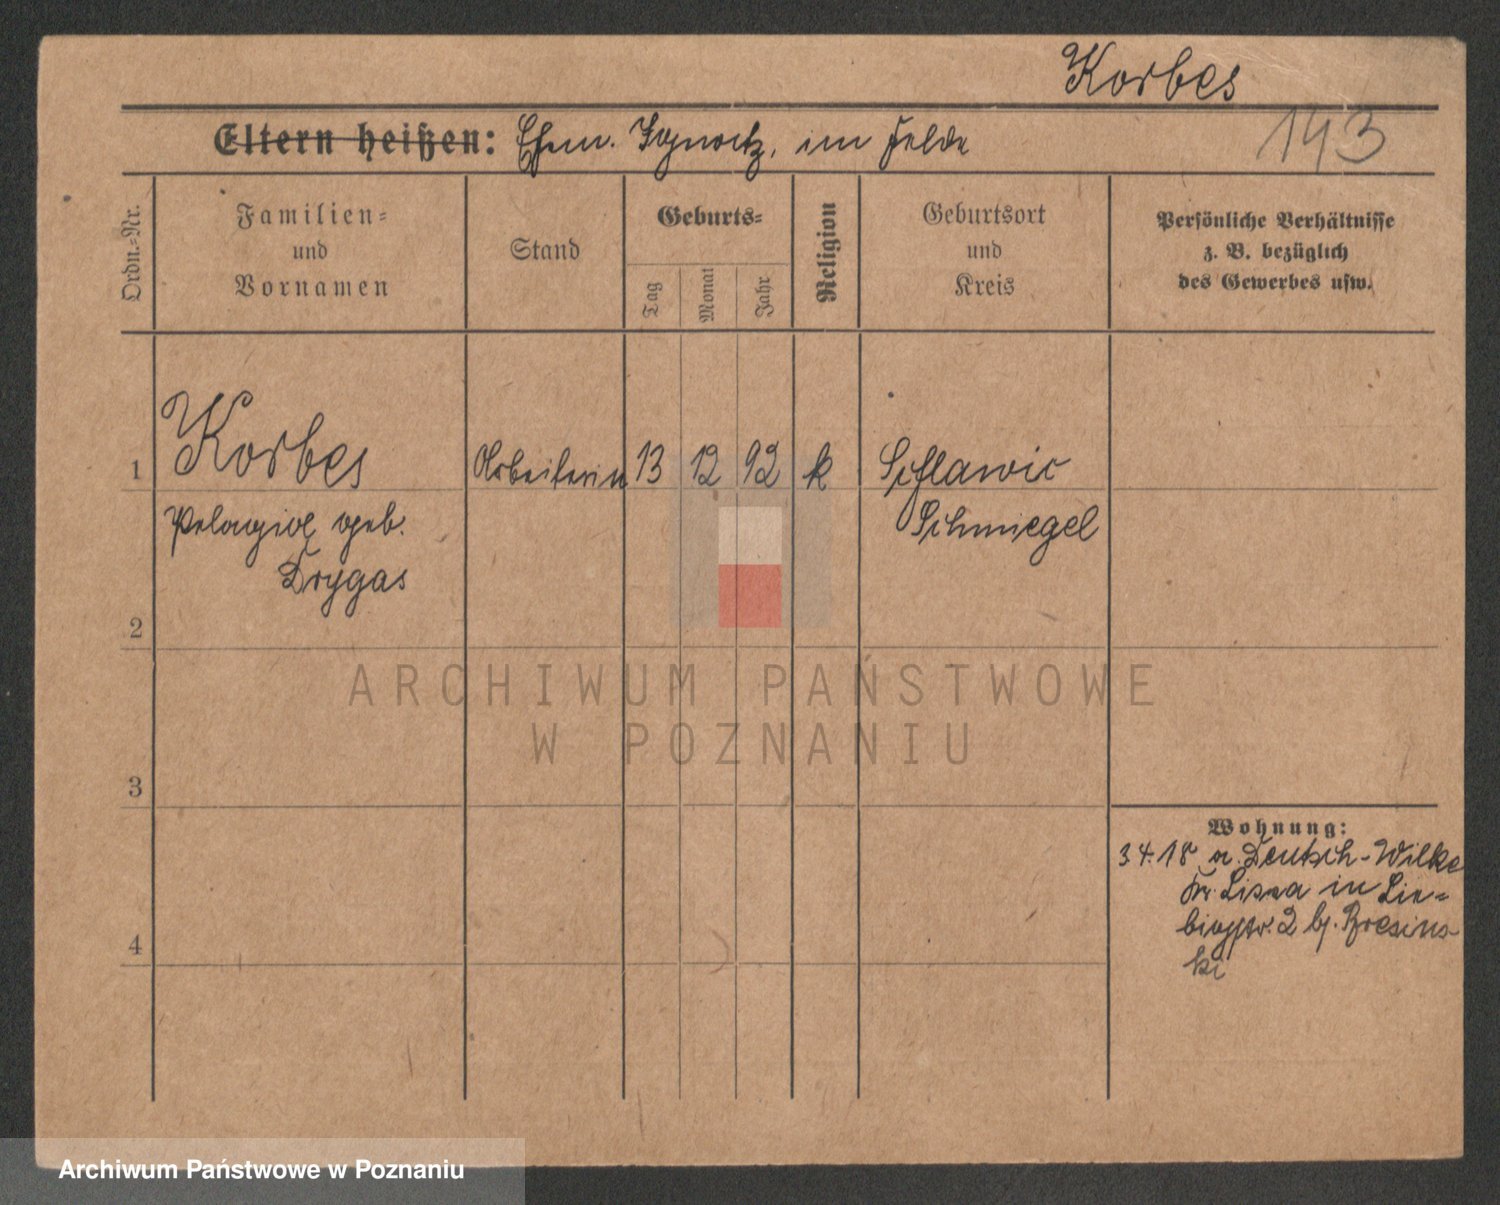 Korbes
Eltern heißen: Ehem. Ignatz, im Felde
143
Ordn.=Nr.
Familien=
und
Vornamen
Stand
Geburts=
Tag
Monat
Jahr
Religion
Geburtsort
und
Kreis
Persönliche Verhältnisse
z. B. bezüglich
des Gewerbes usw.
1 Korbes Arbeiterin 13 12 92 k
Pelagia geb. Schmiegel
Drygas
2
3
4
Wohnung:
3.4.18 a. Deutsch-Wilke
Kr. Lissa in Lie=
bigstr. 2 bj. Bresins=
ki
ARCHIWUM PAŃSTWOWE
W POZNANIU
Archiwum Państwowe w Poznaniu